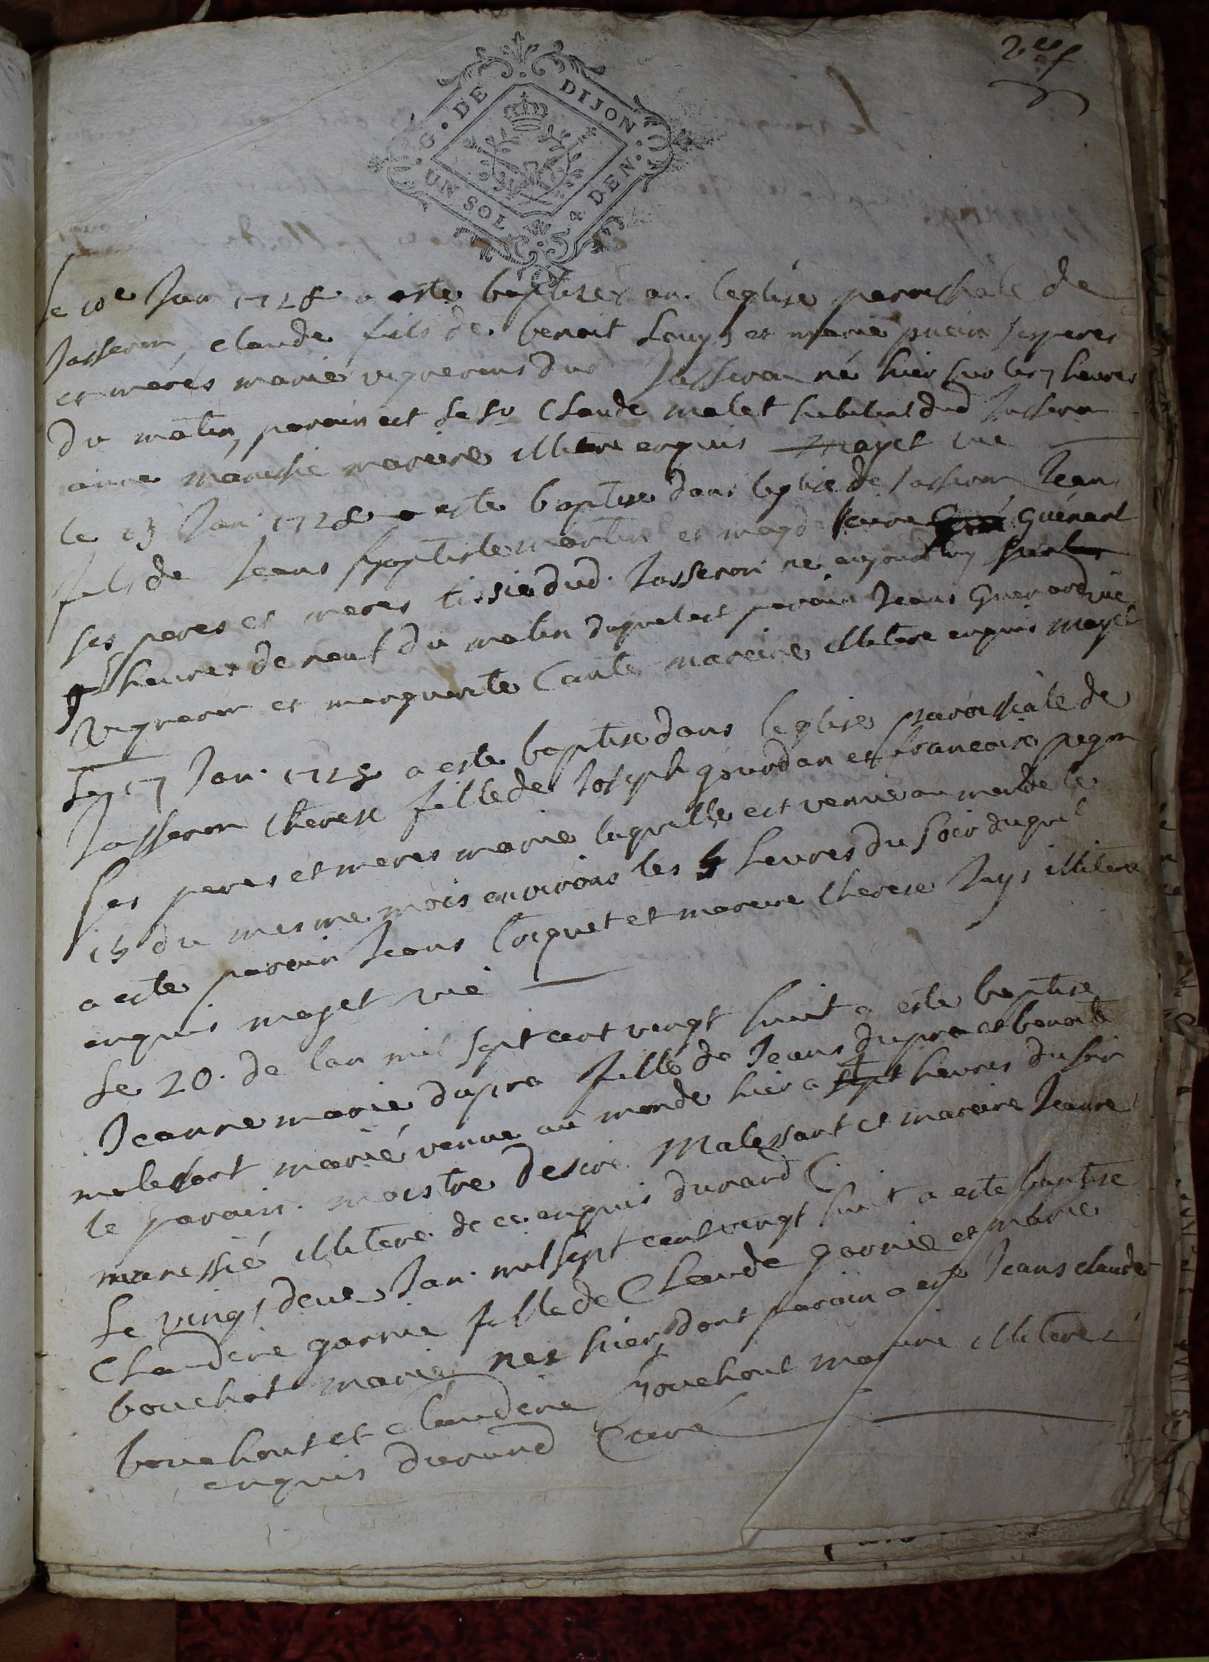 2e f
G. DE DIJON
UN SOL 4 DEN.
Le 10e Jan 1728 a este baptisez en leglise paroissiale de
Jasseron, claude fils de benoit Louys et marie ses peres
et meres marié vignerons dud Jasseron né hier sur les 7 heures
du matin, parain est le Sr Claude malet habitant dud Jasseron
anne maressie mareine illitere enquis mayet vic
le 13 Jan. 1728 a este baptise dans leglise de Jasseron Jean
fils de Jean baptiste martin et magdeleine Guérard
ses peres et meres tissie dud. Jasseron né aujourdhuy sur les
9 heures de neuf du matin duquel est parain Jean Guerard
vigneron et marguerite Cante mareine illitere enquis mayet vic
Le 17 Jan. 1728 a este baptise dans leglise paroissiale de
Jasseron therese fille de Joseph gourdan et francoise pegon
ses peres et meres marie laquelle est venue au monde le
15 du mesme mois environs les 5 heures du soir duquel
a este parain Jean Coquet et mareine therese Juys illitere
enquis mayet vic
Le 20. de lan mil sept cent vingt huit a este baptise
Jeanne marie dupra fille de Jean dupra et benoite
malessart marié venue au monde hier a sept heures du soir
le parain. maistre desire Malessart et mareine Jeanne
maressié illitere de ce enquis durand C
Le vingt deux Jan. mil sept cent vingt huit a este baptise
Claudine garnie fille de Claude garnie et marie
bouchot marié nee hier, dont parain a esté Jean claude
bouchout et claudine bouchout mareine illiteres
enquis durand Curé